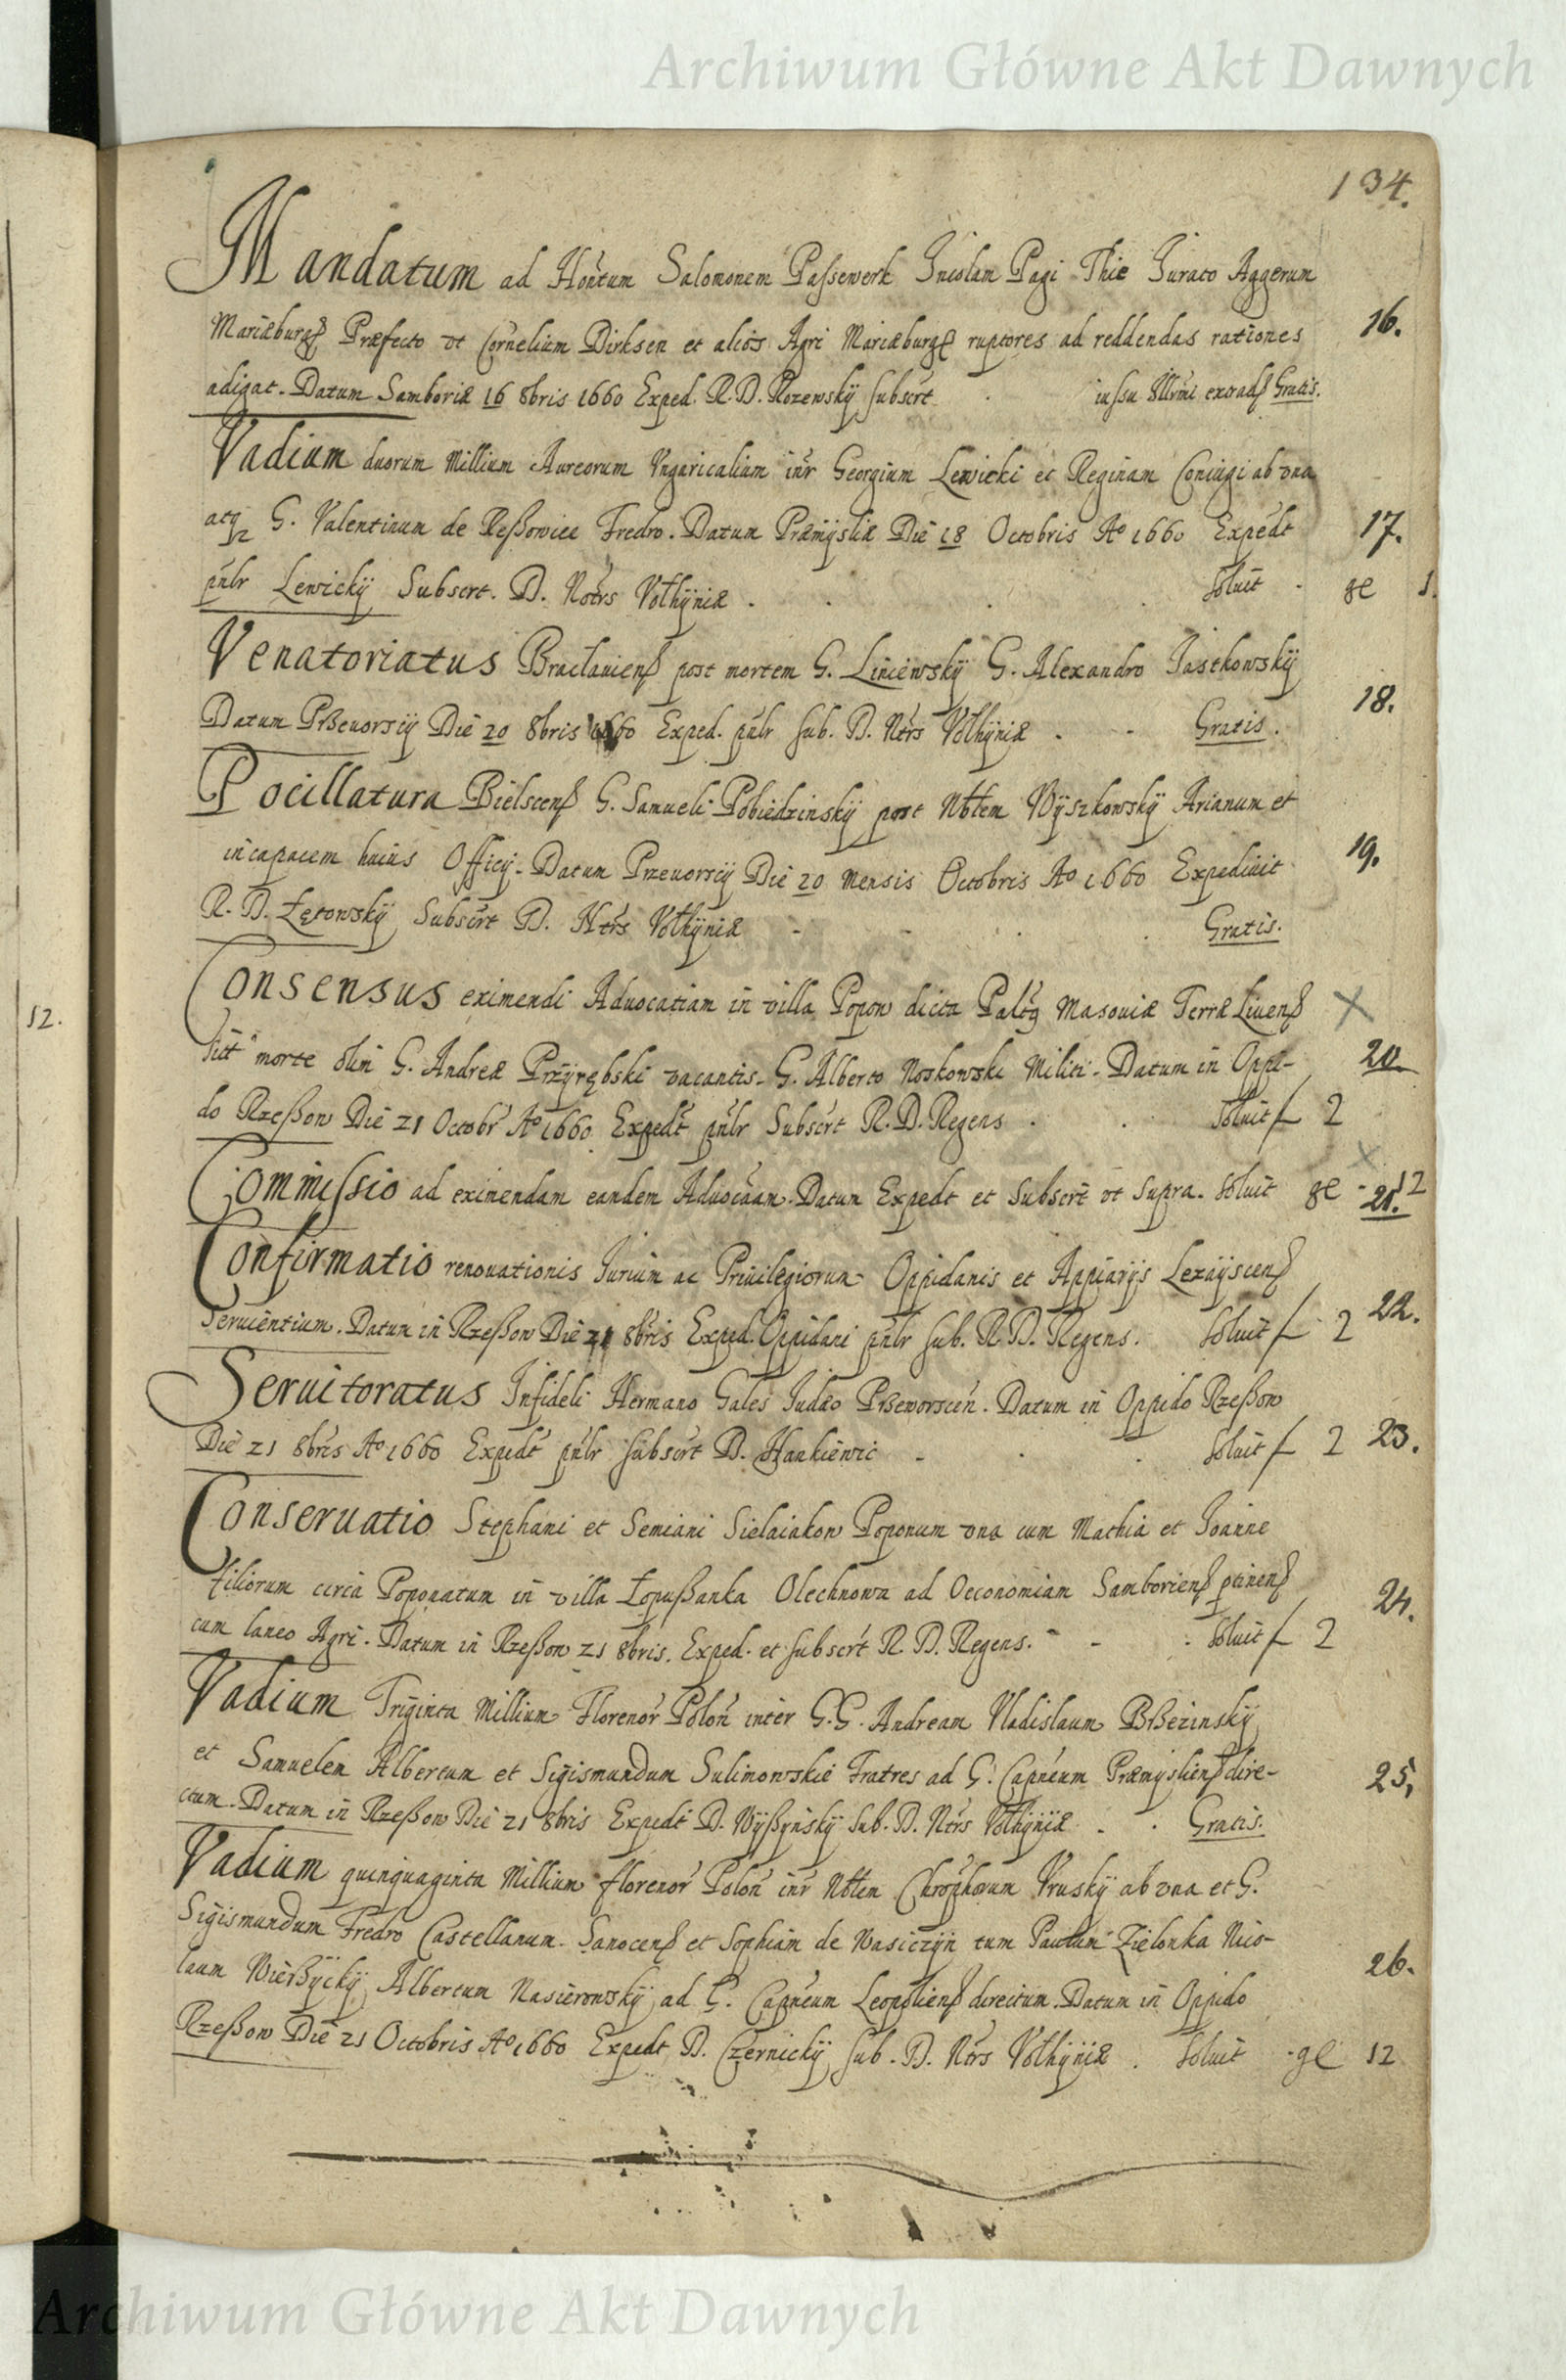 Archiwum Główne Akt Dawnych
134.
Mandatum ad Hontum Salomonem Passewerk Incolam Pagi Thie Iurato Aggerum
Mariæburg Præfecto vt Cornelium Dirksen et alios Agri Mariæburg ruptores ad reddendas rationes
16.
adigat. Datum Samboriæ 16 8bris 1660 Exped. R. D. Rozewskÿ subscrt iussu Illrmi extrad Gratis.
Vadium duorum Millium Aureorum Vngaricalium inr Georgium Lewicki et Reginam Coniugi ab vna
atq G. Valentinum de Pleßowice Fredro. Datum Præmÿsliæ Die 18 Octobris Ao 1660 Expedt
17.
pnlr Lewickÿ Subscrt. D. Notrs Volhÿniæ . Soluit ge 1.
Venatoriatus Braclauiens post mortem G. Lincewskÿ G. Alexandro Jastkowskÿ
18.
Datum Prßeuorsÿ Die 20 8bris 1660 Exped. pnlr sub. D. Ntrs Volhÿniæ . Gratis.
Pocillatura Bielscens G. Samueli Pobiedzinskÿ post Nbtem Wÿszkowskÿ Arianum et
incapacem huius Officÿ. Datum Przeuorsÿ Die 20 Mensis Octobris Ao 1660 Expediuit
19.
R. D. Łętowskÿ Subscrt D. Ntrs Volhÿniæ Gratis.
Consensus eximendi Aduocatiam in villa Popow dicta Paltg Masouiæ Terræ Liuens
sitt morte olim G. Andreæ Przÿrębski vacantis. G. Alberto Noskowski Militi. Datum in Oppi-
20
do Rzeßow Die 21 Octobr Ao 1660 Expedt pnlr Subscrt R. D. Regens . Soluit f 2
Commissio ad eximendam eandem Aduocaam. Datum Expedt et Subscrt vt supra. Soluit ge 12
21.
Confirmatio renouationis Iurium ac Priuilegiorum Oppidanis et Appiarÿs Lezaÿscens
22.
Seruientium. Datum in Rzeßow Die 21 8bris Exped. Oppidani pnlr sub. R. D. Regens. Soluit f 2
Seruitoratus Infideli Hermano Gales Iudæo Prßeworscen. Datum in Oppido Rzeßow
Die 21 8bris Ao 1660 Expedt pnlr subscrt D. Hankiewic . Soluit f 2 23.
Conseruatio Stephani et Semiani Sielaiakow Poponum vna cum Mathia et Ioanne
filiorum circa Poponatum in villa Łopußanka Olechnowa ad Oeconomiam Samboriens ptinens
24.
cum laneo Agri. Datum in Rzeßow 21 8bris. Exped. et subscrt R. D. Regens. Soluit f 2
Vadium Triginta Millium Florenor Polon inter G. G. Andream Vladislaum Brßezinskÿ
et Samuelem Albertum et Sigismundum Sulimowskie Fratres ad G. Capneum Præmysliens dire-
25.
ctum. Datum in Rzeßow Die 21 8bris Expedt D. Wÿßÿnskÿ sub. D. Ntrs Volhÿniæ . Gratis.
Vadium quinquaginta Millium florenor Polon inr Nbtem Chrophorum Vruskÿ ab vna et G.
Sigismundum Fredro Castellanum Sanocens et Sophiam de Wasiczÿn tum Paulum Zielonka Nico-
26.
laum Wierßÿckÿ Albertum Nasierowskÿ ad G. Capneum Leopoliens directum. Datum in Oppido
Rzeßow Die 21 Octobris Ao 1660 Expedt D. Czernickÿ sub. D. Ntrs Volhÿniæ . Soluit ge 12
12.
Archiwum Główne Akt Dawnych